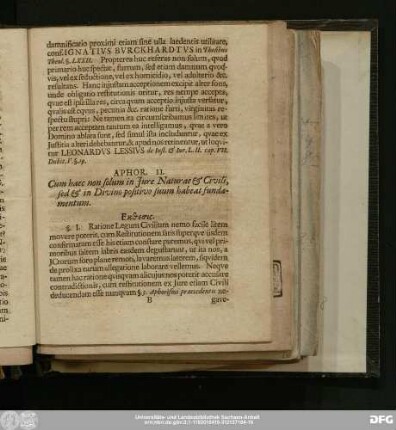 damnificatio proximi etiam sine ulla laedentis utilitate,
conf. IGNATIUS BVRCKHARDTVS in Thesibus
Theol. §. LXXII. Propterea huc referas non solum, quod
primario huc spectat, furtum, sed etiam damnum quod-
vis, vel ex seductione, vel ex homicidio, vel adulterio &c.
resultans. Hanc injustam acceptionem excipit alter fons,
unde obligatio restitutionis oritur, res nempe accepta,
quae est ipsa illa res, circa quam acceptio injusta versatur,
qualis est equus, pecunia &c. ratione furti, virginitas re-
spectu stupri: Ne tamen ita circumscribamus limites, ut
per rem acceptam tantum ea intelligamus, quae a vero
Domino ablata sunt, sed simul ista includantur, quae ex
Justitia alteri debebantur, & apud nos retinentur, ut loqui-
tur LEONARDVS LESSIVS de Just. & Jur. L. II. cap. VII.
Dubit. V. §. 19.
APHOR. II.
Cum haec non solum in Jure Naturae & Civili,
sed & in Divino positivo suum habeat funda-
mentum.
§. I. Ratione Legum Civilium nemo facile litem
movere poterit, cum Restitutionem juris isperque iisdem
confirmatam esse hic etiam constare putemus, qui vel pri-
moribus saltem labris easdem degustarunt, ut ita non, a
JCtorum foro plane remoti, lavaremus laterem, siquidem
de prolixa earum allegatione laborare vellemus. Neque
tamen hac ratione quisquam alicujus nos poterit accusare
contradictionis, cum restitutionem ex Jure etiam Civili
deducendam esse nunquam §. 5. Aphorismi praecedentis ne-
B
gave-
Universitäts- und Landesbibliothek Sachsen-Anhalt
DFG